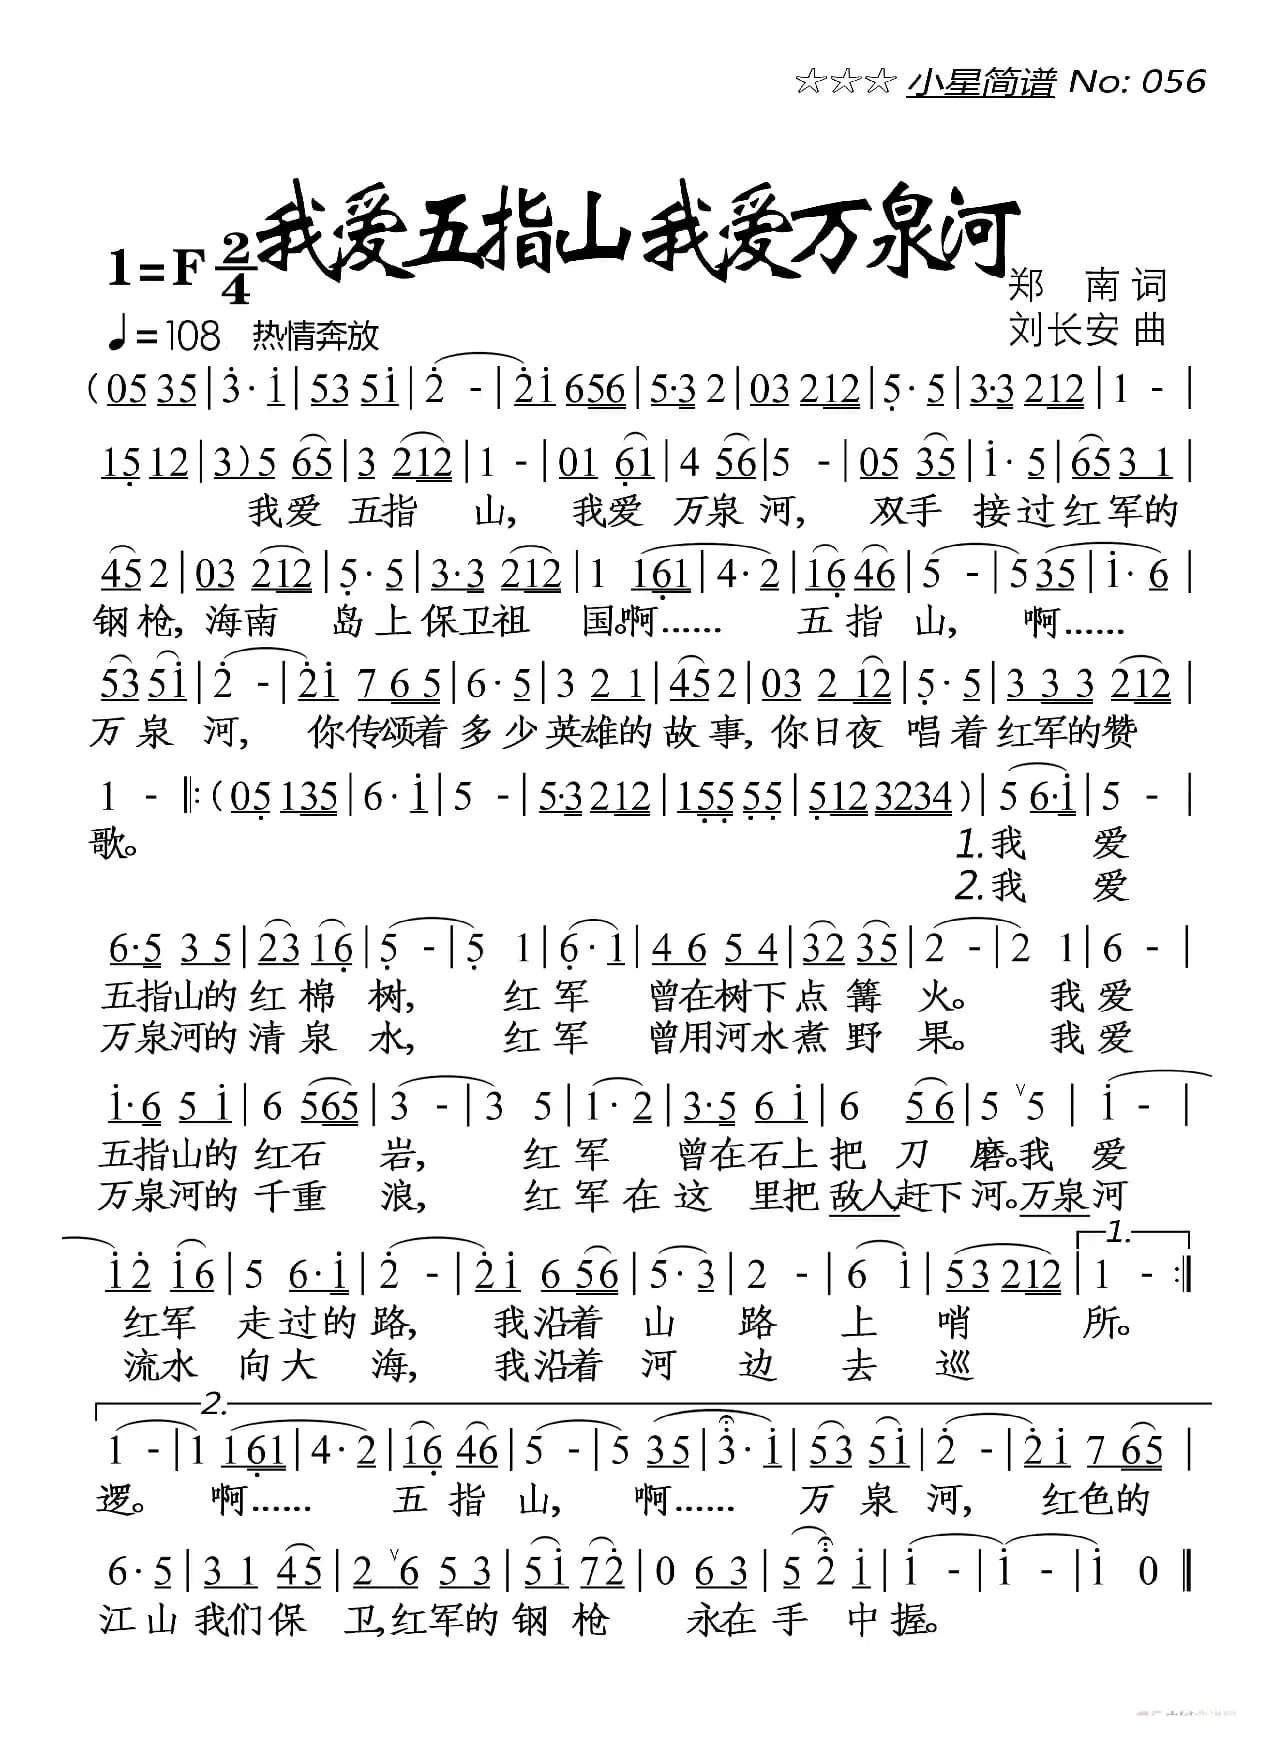 ☆☆☆ 小星简谱 No: 056
我爱五指山 我爱万泉河
1=F 2/4
郑 南 词
♩=108 热情奔放
刘长安 曲
(05 35|3· i|53 5i|2 -|2i 656|5·3 2|03 212|5· 5|3·3 212|1 -|
15 12|3)5 65|3 212|1 -|01 61|4 56|5 -|05 35|i· 5|653 1|
我爱 五指 山, 我爱 万泉 河, 双手 接过红军的
452|03 212|5· 5|3·3 212|1 161|4·2|16 46|5 -|535|i· 6|
钢枪, 海南 岛上保卫祖 国。啊…… 五指 山, 啊……
53 5i|2 -|2i 7 65|6·5|3 2 1|452|03 2 12|5· 5|3 3 3 212|
万泉 河, 你传颂着多少英雄的故事,你日夜 唱着红军的赞
1 - ‖:(05 135|6· i|5 -|5·3 212|155 55|512 3234)|5 6·i|5 -|
歌。 1.我 爱
2.我 爱
6·5 3 5|23 16|5 -|5 1|6·1|4 6 5 4|32 35|2 -|2 1|6 -|
五指山的红棉 树, 红军 曾在树下点篝 火。 我爱
万泉河的清泉 水, 红军 曾用河水煮野 果。 我爱
i·6 5 i|6 565|3 -|3 5|1·2|3·5 6 i|6 56|5 ∨5|i -|
五指山的红石 岩, 红军 曾在石上把刀 磨。我 爱
万泉河的千重 浪, 红军在这 里把敌人赶下河。万泉河
1.
i2 i6|5 6·i|2 -|2i 6 56|5·3|2 -|6 i|53 212|1 - :‖
红军 走过的路, 我沿着 山 路 上 哨 所。
流水 向大 海, 我沿着 河 边 去 巡
2.
1 -|1 161|4·2|16 46|5 -|5 35|3· i|53 5i|2 -|2i 7 65|
逻。 啊…… 五指 山, 啊…… 万泉 河, 红色的
6·5|3 1 45|2 ∨6 5 3|5i 72|0 6 3|5 2 i|i -|i -|i 0‖
江山我们保 卫,红军的钢枪 永在手 中握。